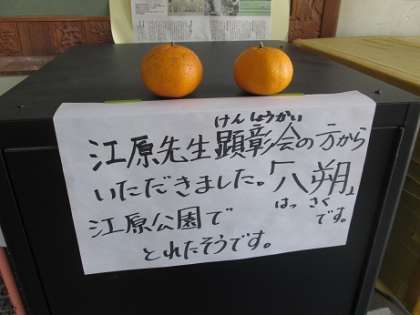 江原先生顕彰会の方から
けんしょうかい
いただきました。「八朔」
はっさく
です。
江原公園で
とれたそうです。